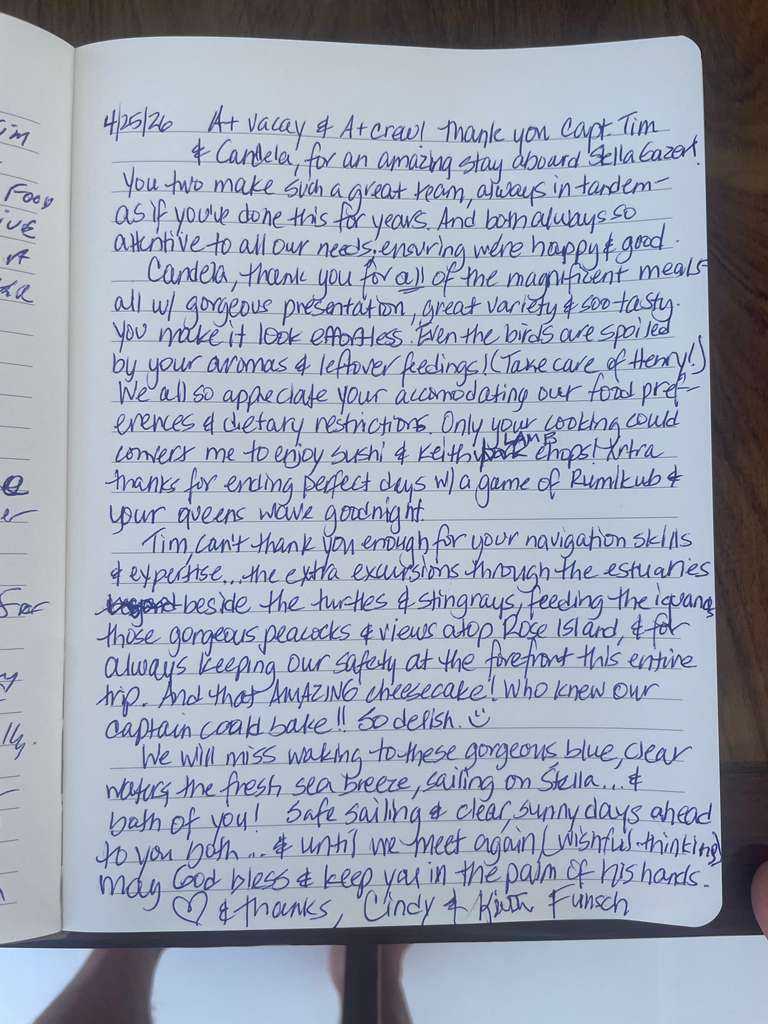 4/25/26 A+ vacay & A+ crew! Thank you Capt. Tim
& Candela, for an amazing stay aboard Stella Gazer!
You two make such a great team, always in tandem—
as if you've done this for years. And both always so
attentive to all our needs, ensuring we're happy & good.
Candela, thank you for all of the magnificent meals—
all w/ gorgeous presentation, great variety & soo tasty.
You make it look effortless. Even the birds are spoiled
by your aromas & leftover feedings! (Take care of Henry!)
We all so appreciate your accomodating our food pref-
erences & dietary restrictions. Only your cooking could
convert me to enjoy sushi & Keith LAMB chops! Xntra
thanks for ending perfect days w/ a game of Rumikub &
your queens wave goodnight.
Tim, can't thank you enough for your navigation skills
& expertise... the extra excursions through the estuaries
beside the turtles & stingrays, feeding the iguanas
those gorgeous peacocks & views atop Rose Island, & for
always keeping our safety at the forefront this entire
trip. And that AMAZING cheesecake! Who knew our
captain could bake!! So delish. ☺
We will miss waking to these gorgeous blue, clear
waters, the fresh sea breeze, sailing on Stella... &
both of you! Safe sailing & clear, sunny days ahead
to you both ... & until we meet again (wishful thinking)
may God bless & keep you in the palm of his hands.
♡ & thanks, Cindy & Keith Funsch
Tim
Food